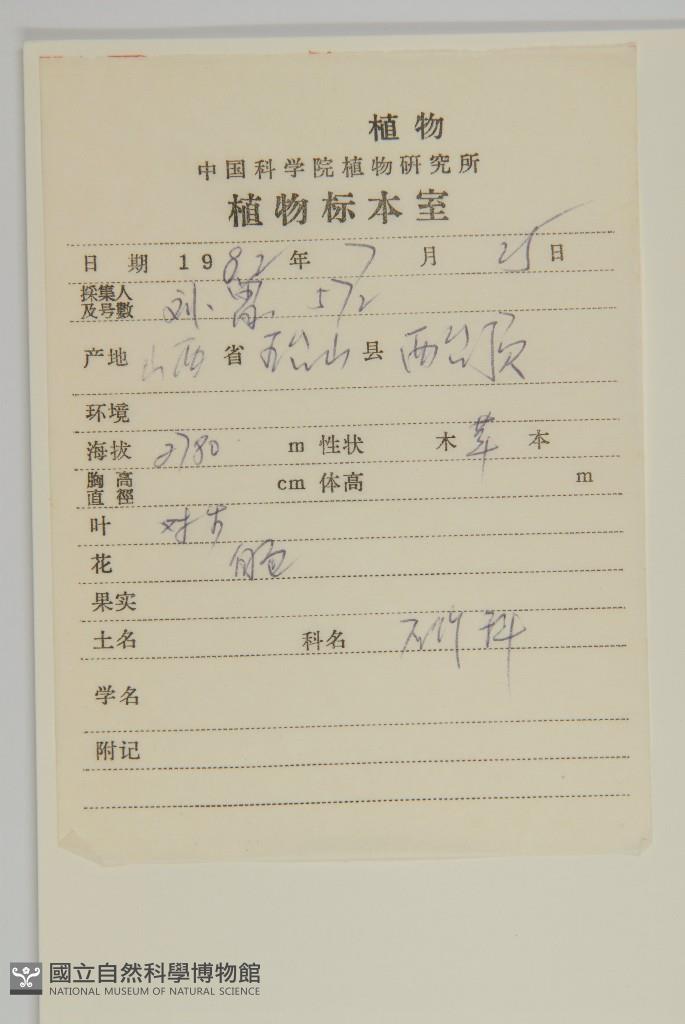 植物
中国科学院植物研究所
植物标本室
日 期 1982年 7 月 25 日
採集人及号數 刘 572
产地 山西 省 五台山 县 西台顶
环境
海拔 2780 m 性状 木 草 本
胸高直徑 cm 体高 m
叶 对生
花 白色
果实
土名 科名 石竹科
学名
附记
國立自然科學博物館
NATIONAL MUSEUM OF NATURAL SCIENCE